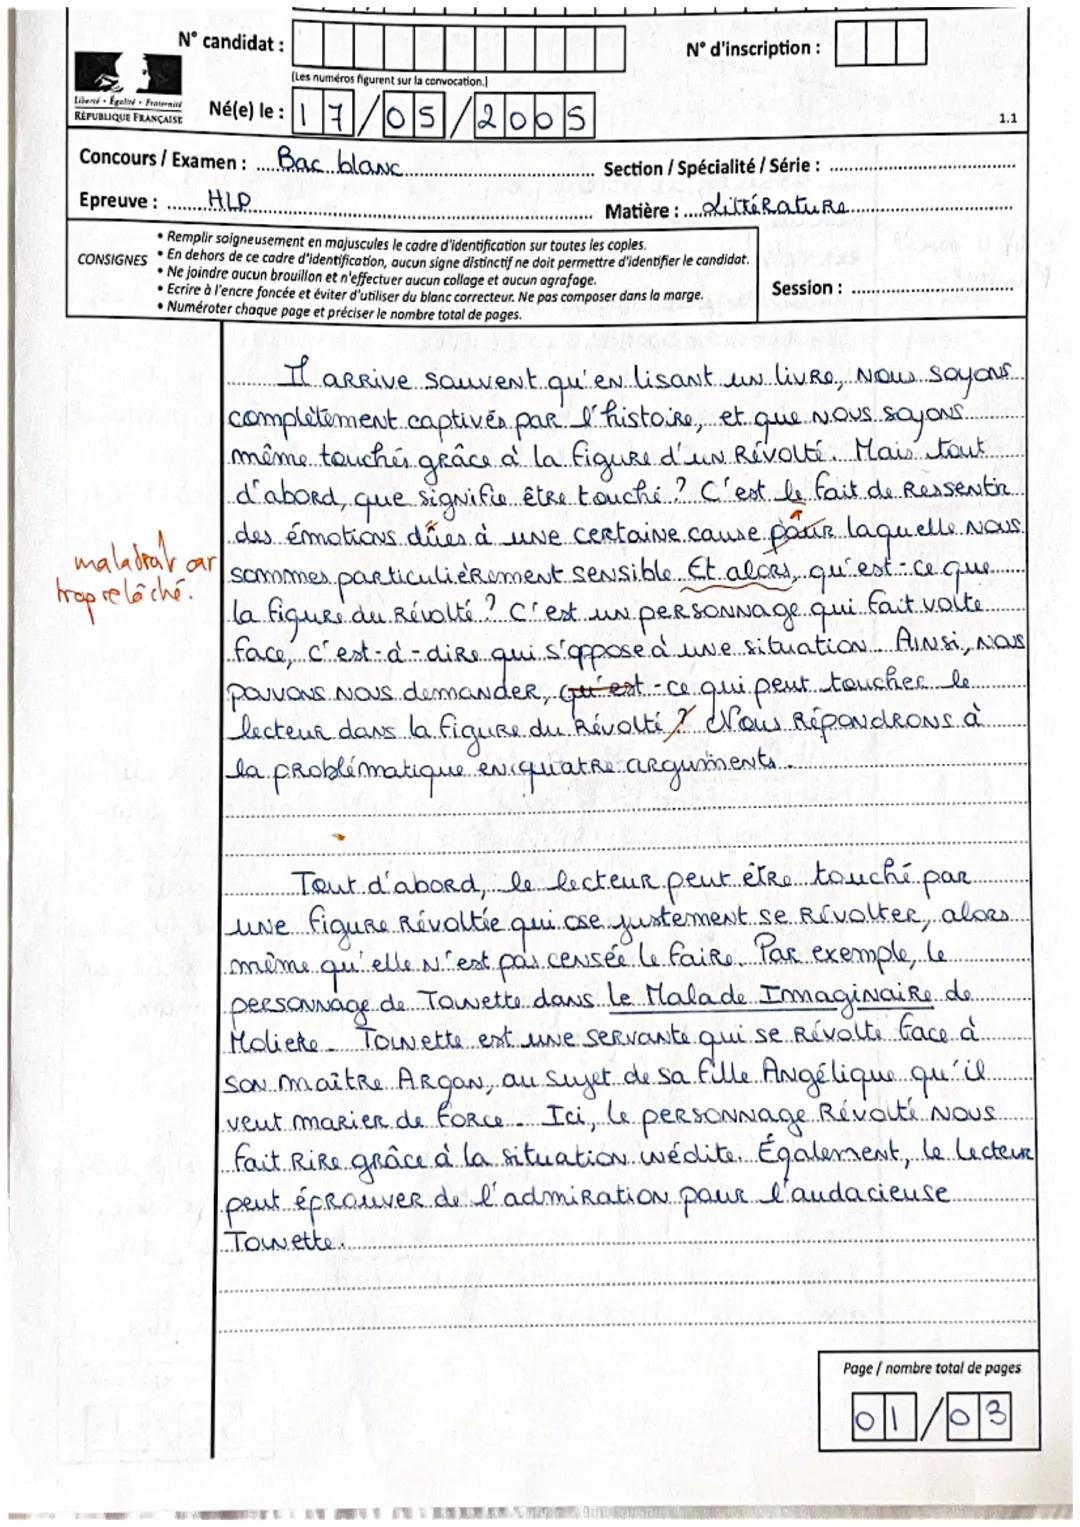 N° candidat :
N° d'inscription :
(Les numéros figurent sur la convocation.)
Liberté • Égalité • Fraternité
RÉPUBLIQUE FRANÇAISE
Né(e) le : 17/05/2005
1.1
Concours / Examen : Bac blanc
Section / Spécialité / Série :
Epreuve : HLP
Matière : Littérature
CONSIGNES
• Remplir soigneusement en majuscules le cadre d'identification sur toutes les copies.
• En dehors de ce cadre d'identification, aucun signe distinctif ne doit permettre d'identifier le candidat.
• Ne joindre aucun brouillon et n'effectuer aucun collage et aucun agrafage.
• Ecrire à l'encre foncée et éviter d'utiliser du blanc correcteur. Ne pas composer dans la marge.
• Numéroter chaque page et préciser le nombre total de pages.
Session :
Il arrive souvent qu'en lisant un livre, nous soyons
complètement captivés par l'histoire, et que nous soyons
même touchés grâce à la figure d'un Révolté. Mais tout
d'abord, que signifie être touché ? C'est le fait de ressentir
des émotions dûes à une certaine cause pour laquelle nous
sommes particulièrement sensible. Et alors, qu'est-ce que
la figure du Révolté ? C'est un personnage qui fait volte
face, c'est-à-dire qui s'oppose à une situation. Ainsi, nous
pouvons nous demander, qu'est-ce qui peut toucher le
lecteur dans la figure du Révolté ? Nous répondrons à
la problématique en quatre arguments.
maladroit car
trop relâché.
Tout d'abord, le lecteur peut être touché par
une figure révoltée qui ose justement se révolter, alors
même qu'elle n'est pas censée le faire. Par exemple, le
personnage de Toinette dans Le Malade Imaginaire de
Moliere. Toinette est une servante qui se révolte face à
son maître Argan, au sujet de sa fille Angélique qu'il
veut marier de force. Ici, le personnage Révolté nous
fait rire grâce à la situation inédite. Également, le lecteur
peut éprouver de l'admiration pour l'audacieuse
Toinette.
Page / nombre total de pages
01/03